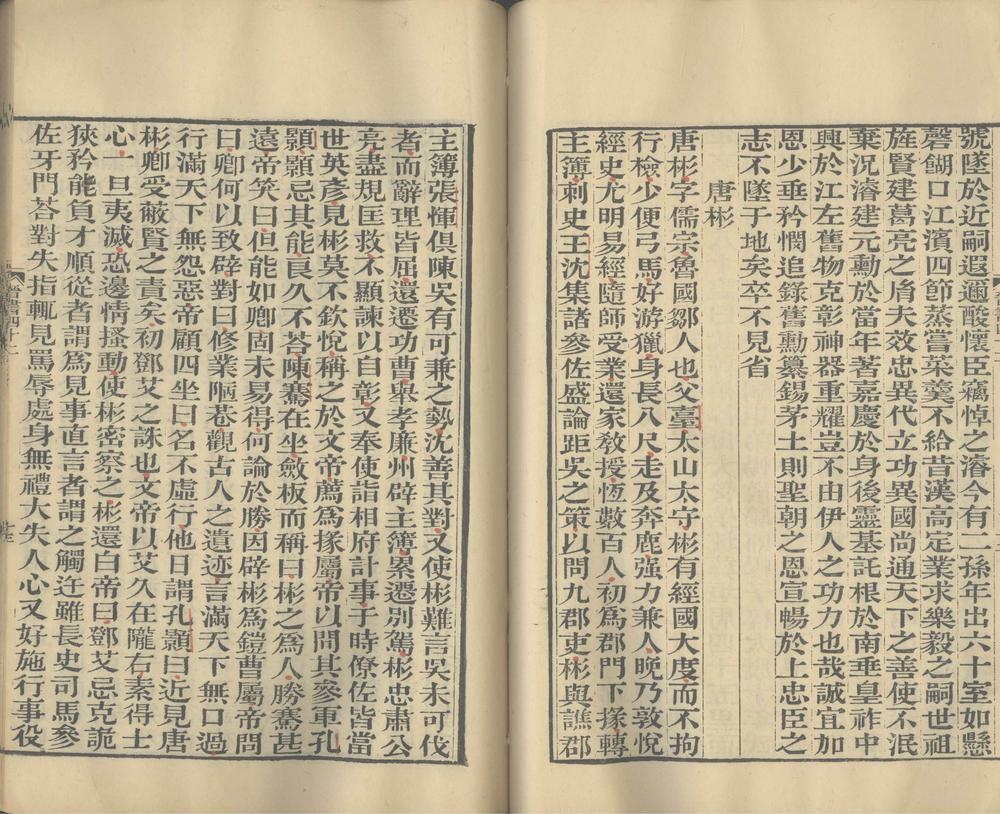 號墜於近嗣遐邇酸懷臣竊悼之濬今有二孫年出六十室如懸
磬餬口江濱四節蒸嘗菜羹不給昔漢高定業求樂毅之嗣世祖
旌賢建葛亮之𦙍夫效忠異代立功異國尚通天下之善使不泯
棄況濬建元勳於當年著嘉慶於身後靈基託根於南垂皇祚中
興於江左舊物克彰神器重耀豈不由伊人之功力也哉誠宜加
恩少垂矜憫追錄舊勳纂錫茅土則聖朝之恩宣暢於上忠臣之
志不墜于地矣卒不見省
唐彬
唐彬字儒宗魯國鄒人也父臺太山太守彬有經國大度而不拘
行檢少便弓馬好游獵身長八尺走及奔鹿强力兼人晚乃敦悅
經史尤明易經隨師受業還家敎授恆數百人初為郡門下掾轉
主簿刺史王沈集諸參佐盛論距吳之策以問九郡吏彬與譙郡
主簿張惲俱陳吳有可兼之勢沈善其對又使彬難言吳未可伐
者而辭理皆屈還遷功曹舉孝廉州辟主簿累遷別駕彬忠肅公
亮盡規匡救不顯諫以自彰又奉使詣相府計事于時僚佐皆當
世英彥見彬莫不欽悅稱之於文帝薦爲掾屬帝以問其參軍孔
顥顥忌其能良久不荅陳騫在坐斂板而稱曰彬之爲人勝騫甚
遠帝笑曰但能如卿固未易得何論於勝因辟彬爲鎧曹屬帝問
曰卿何以致辟對曰修業陋巷觀古人之遺迹言滿天下無口過
行滿天下無怨惡帝顧四坐曰名不虛行他日謂孔顥曰近見唐
彬卿受蔽賢之責矣初鄧艾之誅也文帝以艾久在隴右素得士
心一旦夷滅恐邊情搔動使彬密察之彬還白帝曰鄧艾忌克詭
狹矜能負才順從者謂爲見事直言者謂之觸迕雖長史司馬參
佐牙門荅對失指輒見罵辱處身無禮大失人心又好施行事役
晉書四十二